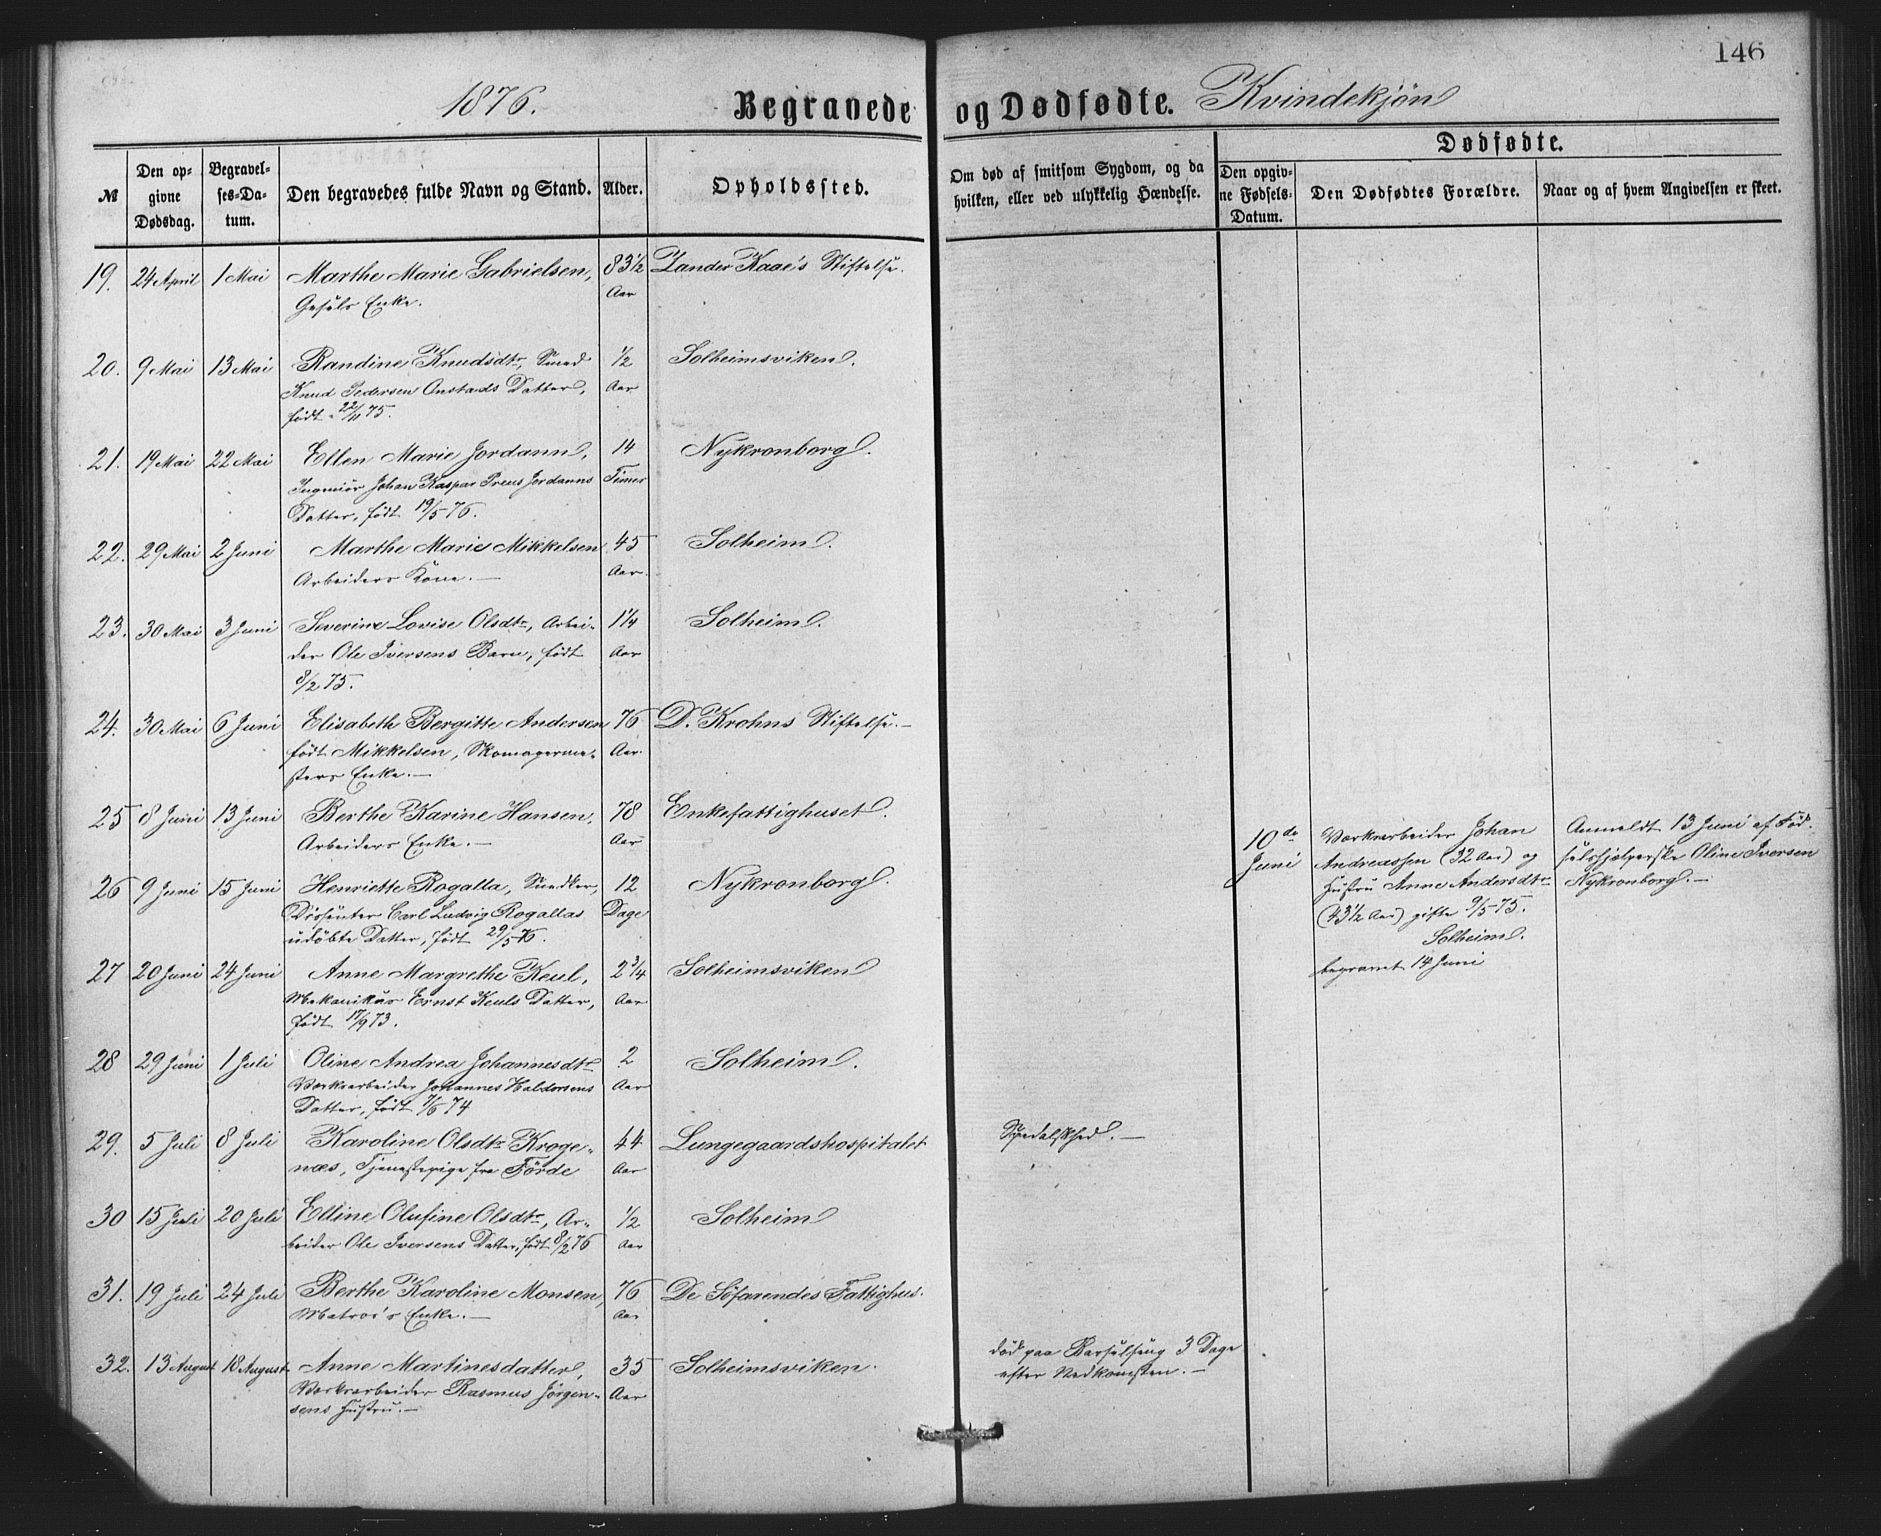 146
1876.
Begravede og Dødfødte. Kvindekjøn
Dødfødte.
№
Den opgivne Dødsdag.
Begravelses-Datum.
Den begravedes fulde Navn og Stand.
Alder.
Opholdssted.
Om død af smitsom Sygdom, og da hvilken, eller ved ulykkelig Hændelse.
Den opgivne Fødsels-Datum.
Den Dødfødtes Forældre.
Naar og af hvem Angivelsen er skeet.
19. 24 April 1 Mai Marthe Marie Gabrielsen, 83½ Zander Kaae's Stiftelse.
Enke. Aar
20. 9 Mai 13 Mai Randine Knudsdtr, Smed ½ Solheimsviken.
Knud Pedersen Onstads Datter, Aar
født 22/11 75.
21. 19 Mai 22 Mai Ellen Marie Jordann, 14 Nykronborg.
Ingeniør Johan Kaspar Preus Jordanns Timer
Datter, født 19/5 76.
22. 29 Mai 2 Juni Marthe Marie Mikkelsen 45 Solheim.
Arbeiders Kone.— Aar.
23. 30 Mai 3 Juni Severine Lovise Olsdtr, Arbei- 1¼ Solheim.
der Ole Iversens Barn, født Aar
8/2 75.
24. 30 Mai 6 Juni Elisabeth Bergitte Andersen 76 D. Krohns Stiftelse.—
født Mikkelsen, Skomagerme- Aar.
sters Enke.—
25 8 Juni 13 Juni Berthe Karine Hansen, 78 Enkefattighuset.
Arbeiders Enke.— Aar
26 9 Juni 15 Juni Henriette Rogalla, 12 Nykronborg.
Dissenter Carl Ludvig Rogallas Dage
udøbte Datter, født 29/5 76.
10de Juni
Værkarbeider Johan
Andreassen (32 Aar) og
Hustru Anne Andersdtr
(43½ Aar) gifte 9/5 75.
Solheim.
begravet 14 Juni
Anmeldt 13 Juni af Fød-
selshjælperske Oline Iversen
Nykronborg.—
27 20 Juni 24 Juni Anne Margrethe Keul, 2¾ Solheimsviken
Mekanikus Ernst Keuls Datter, Aar
født 17/9 73.
28 29 Juni 1 Juli Oline Andrea Johannesdtr 2 Solheim.
Værkarbeider Johannes Haldorsens Aar
Datter, født 7/6 74
29. 5 Juli 8 Juli Karoline Olsdtr Kroge- 44 Lungegaardshospitalet Spedalskhed.—
næs, Tjenestepige fra Förde Aar
30 15 Juli 20 Juli Elline Olufine Olsdtr, Ar- ½ Solheim
beider Ole Iversens Datter, født 8/2 76 Aar
31. 19 Juli 24 Juli Berthe Karoline Monsen, 76 De Söfarendes Fattighus.
Matros's Enke.— Aar
32. 13 August 18 August Anne Martinesdatter, 35 Solheimsviken. død paa Barselseng 3 Dage
Værkarbeider Rasmus Jörgen- Aar efter Nedkomsten.—
sens Hustru.—